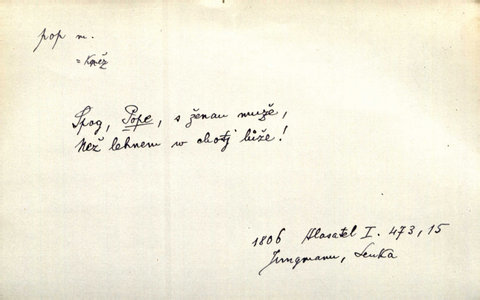 pop m.
= Kněz
Spog, Pope, s ženau muže,
Než lehnem w obotj lůže!
1806 Hlasatel I. 473, 15
Jungmann, Lenka